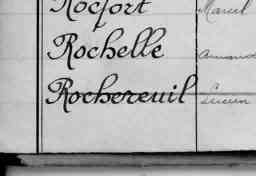 Rocfort Marcel
Rochelle Armand
Rochereuil Lucien